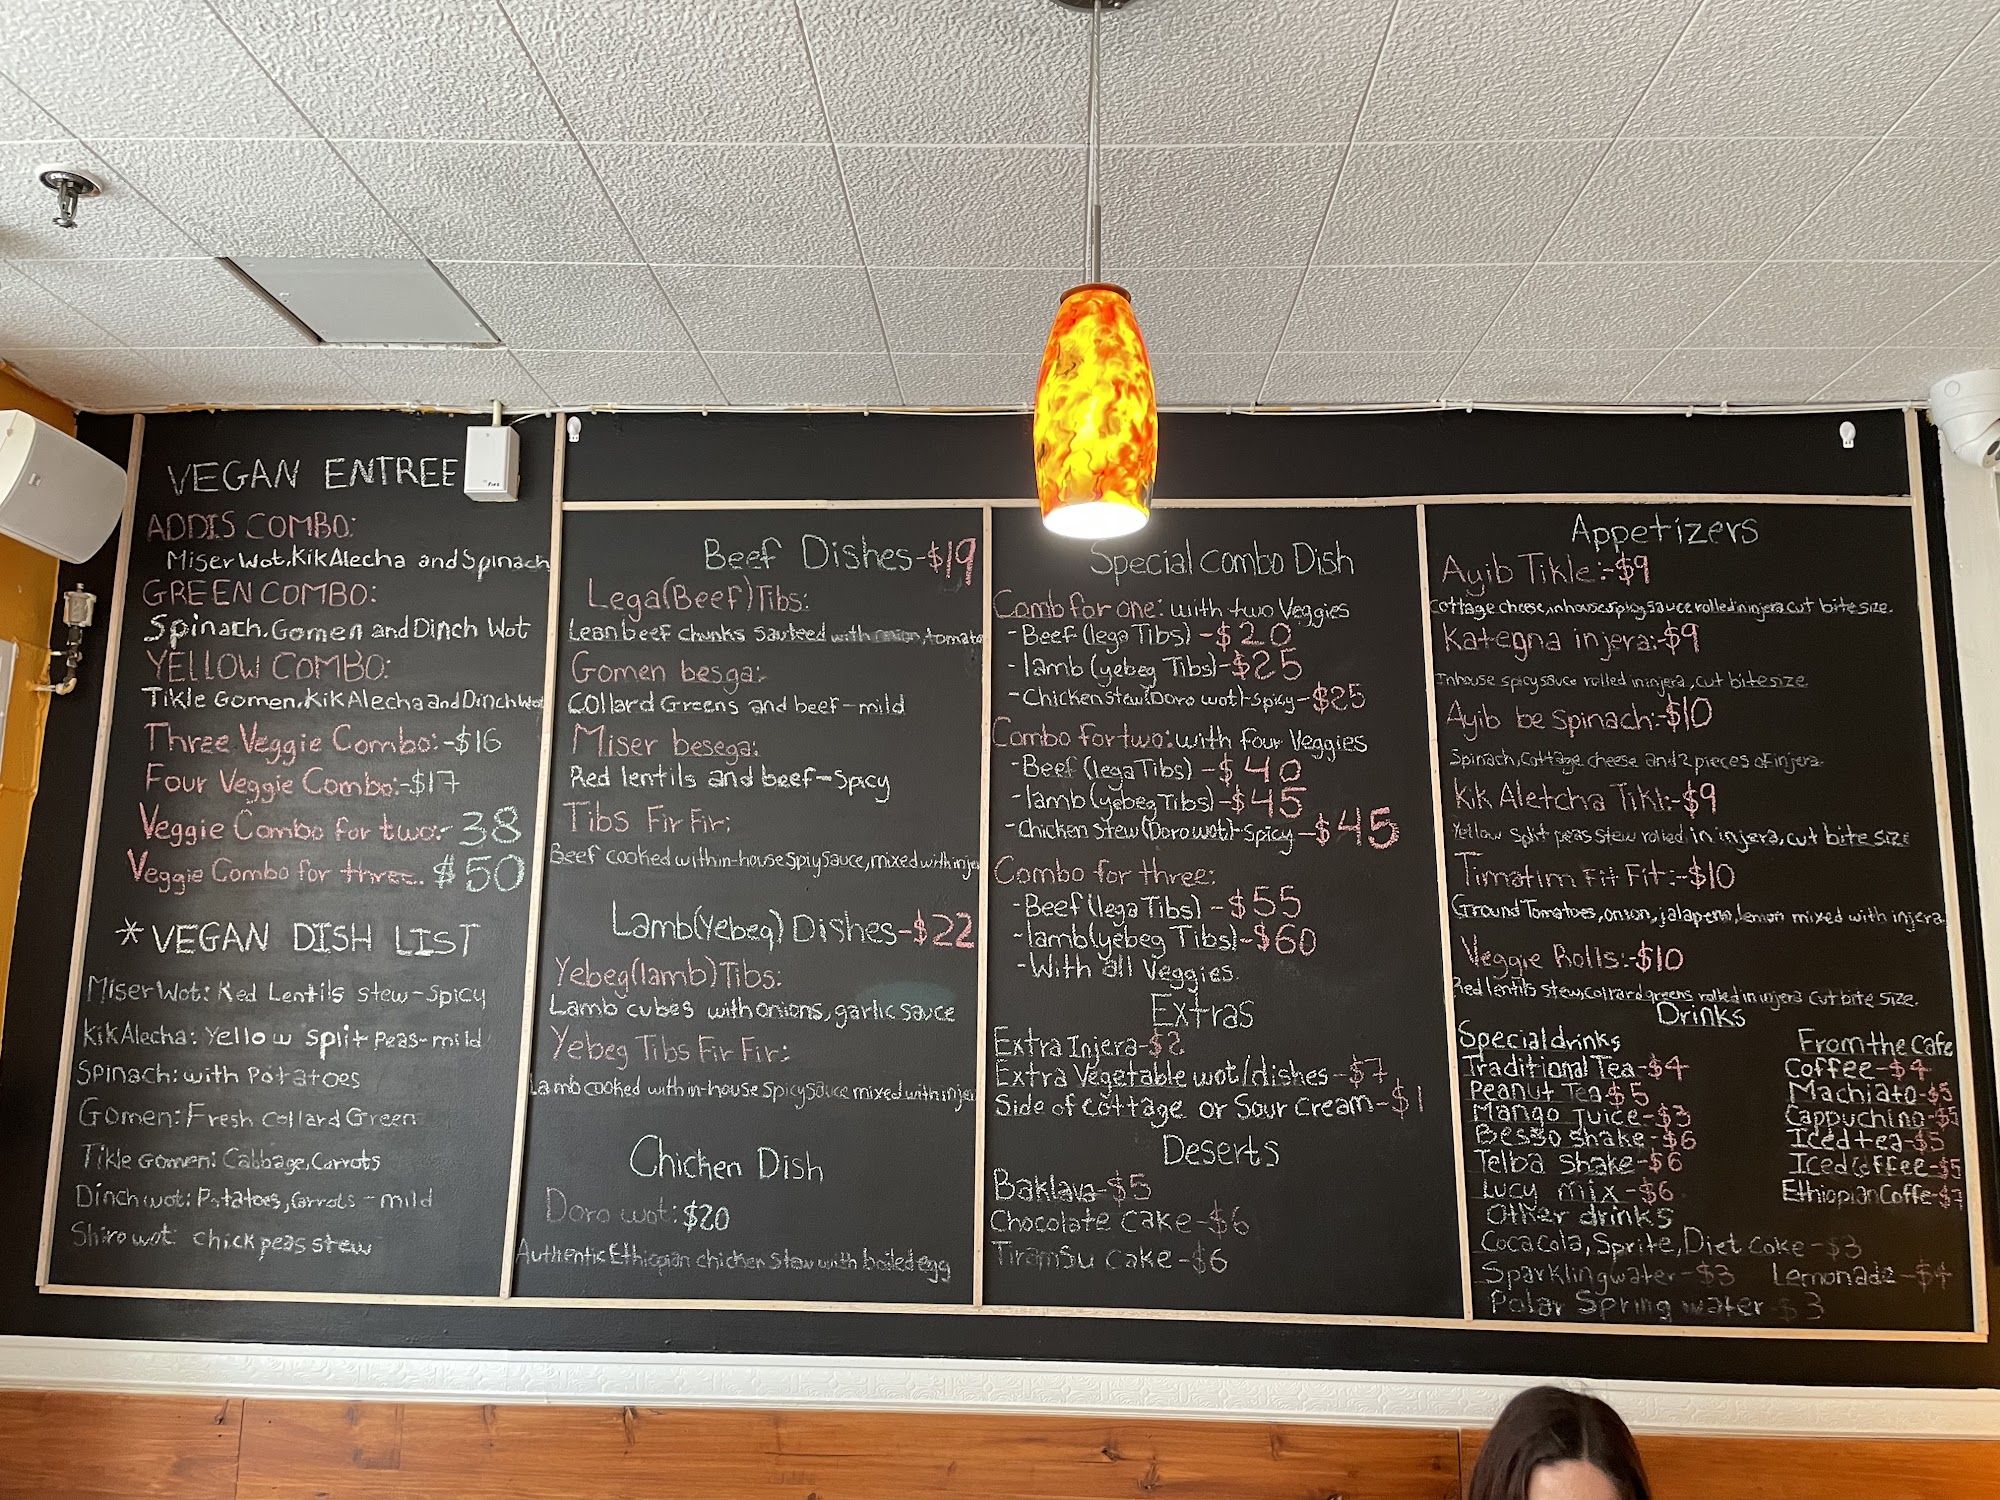 VEGAN ENTREE
ADDIS COMBO:
Miser Wot, Kik Alecha and Spinach
GREEN COMBO:
Spinach, Gomen and Dinch Wot
YELLOW COMBO:
Tikle Gomen, Kik Alecha and Dinch Wot
Three Veggie Combo:-$16
Four Veggie Combo:-$17
Veggie Combo for two:- 38
Veggie Combo for three. $50
*VEGAN DISH LIST
Miser Wot: Red Lentils stew-Spicy
Kik Alecha: Yellow Split Peas-mild
Spinach: with Potatoes
Gomen: Fresh Collard Green
Tikle Gomen: Cabbage, Carrots
Dinch wot: Potatoes, Carrots - mild
Shiro wot: chick peas stew
Beef Dishes-$19
Lega(Beef)Tibs:
Lean beef chunks sauteed with onion, tomato
Gomen besga:
Collard Greens and beef-mild
Miser besega:
Red lentils and beef-Spicy
Tibs Fir Fir:
Beef cooked with in-house spiy sauce, mixed with injer
Lamb(Yebeg) Dishes-$22
Yebeg(lamb)Tibs:
Lamb cubes with onions, garlic sauce
Yebeg Tibs Fir Fir:
Lamb cooked with in-house spicy sauce mixed with injer
Chicken Dish
Doro wot: $20
Authentic Ethiopian chicken stew with boiled egg
Special combo Dish
Comb for one: with two Veggies
-Beef (lega Tibs) -$20
-lamb (yebeg Tibs)-$25
-Chicken stew(Doro wot)-Spicy-$25
Combo for two: with four Veggies
-Beef (lega Tibs) -$40
-lamb (yebeg Tibs)-$45
-Chicken stew (Doro wot)-Spicy-$45
Combo for three:
-Beef (lega Tibs) -$55
-lamb(yebeg Tibs)-$60
-With all Veggies.
Extras
Extra Injera-$2
Extra Vegetable wot/dishes-$7
Side of cottage or Sour cream-$1
Deserts
Baklava-$5
Chocolate cake-$6
Tiramsu cake-$6
Appetizers
Ayib Tikle:-$9
Cottage cheese, inhouse spicy sauce rolled in injera cut bite size.
Kategna injera:-$9
Inhouse spicy sauce rolled in injera, cut bite size
Ayib be spinach:-$10
Spinach, cottage cheese and 2 pieces of injera
Kik Aletcha Tikl:-$9
Yellow split peas stew rolled in injera, cut bite size
Timatim Fit Fit:-$10
Ground Tomatoes, onion, jalapeno, lemon mixed with injera
Veggie Rolls:-$10
Red lentils stew, collard greens rolled in injera cut bite size.
Drinks
Special drinks
Traditional Tea-$4
Peanut Tea-$5
Mango Juice-$3
Besso shake-$6
Telba shake-$6
Lucy mix-$6
From the Cafe
Coffee-$4
Machiato-$5
Cappuchino-$5
Iced tea-$5
Iced coffee-$5
Ethiopian Coffe-$7
Other drinks
Coca Cola, Sprite, Diet coke-$3
Sparkling water-$3 Lemonade-$4
Polar Spring water-$3